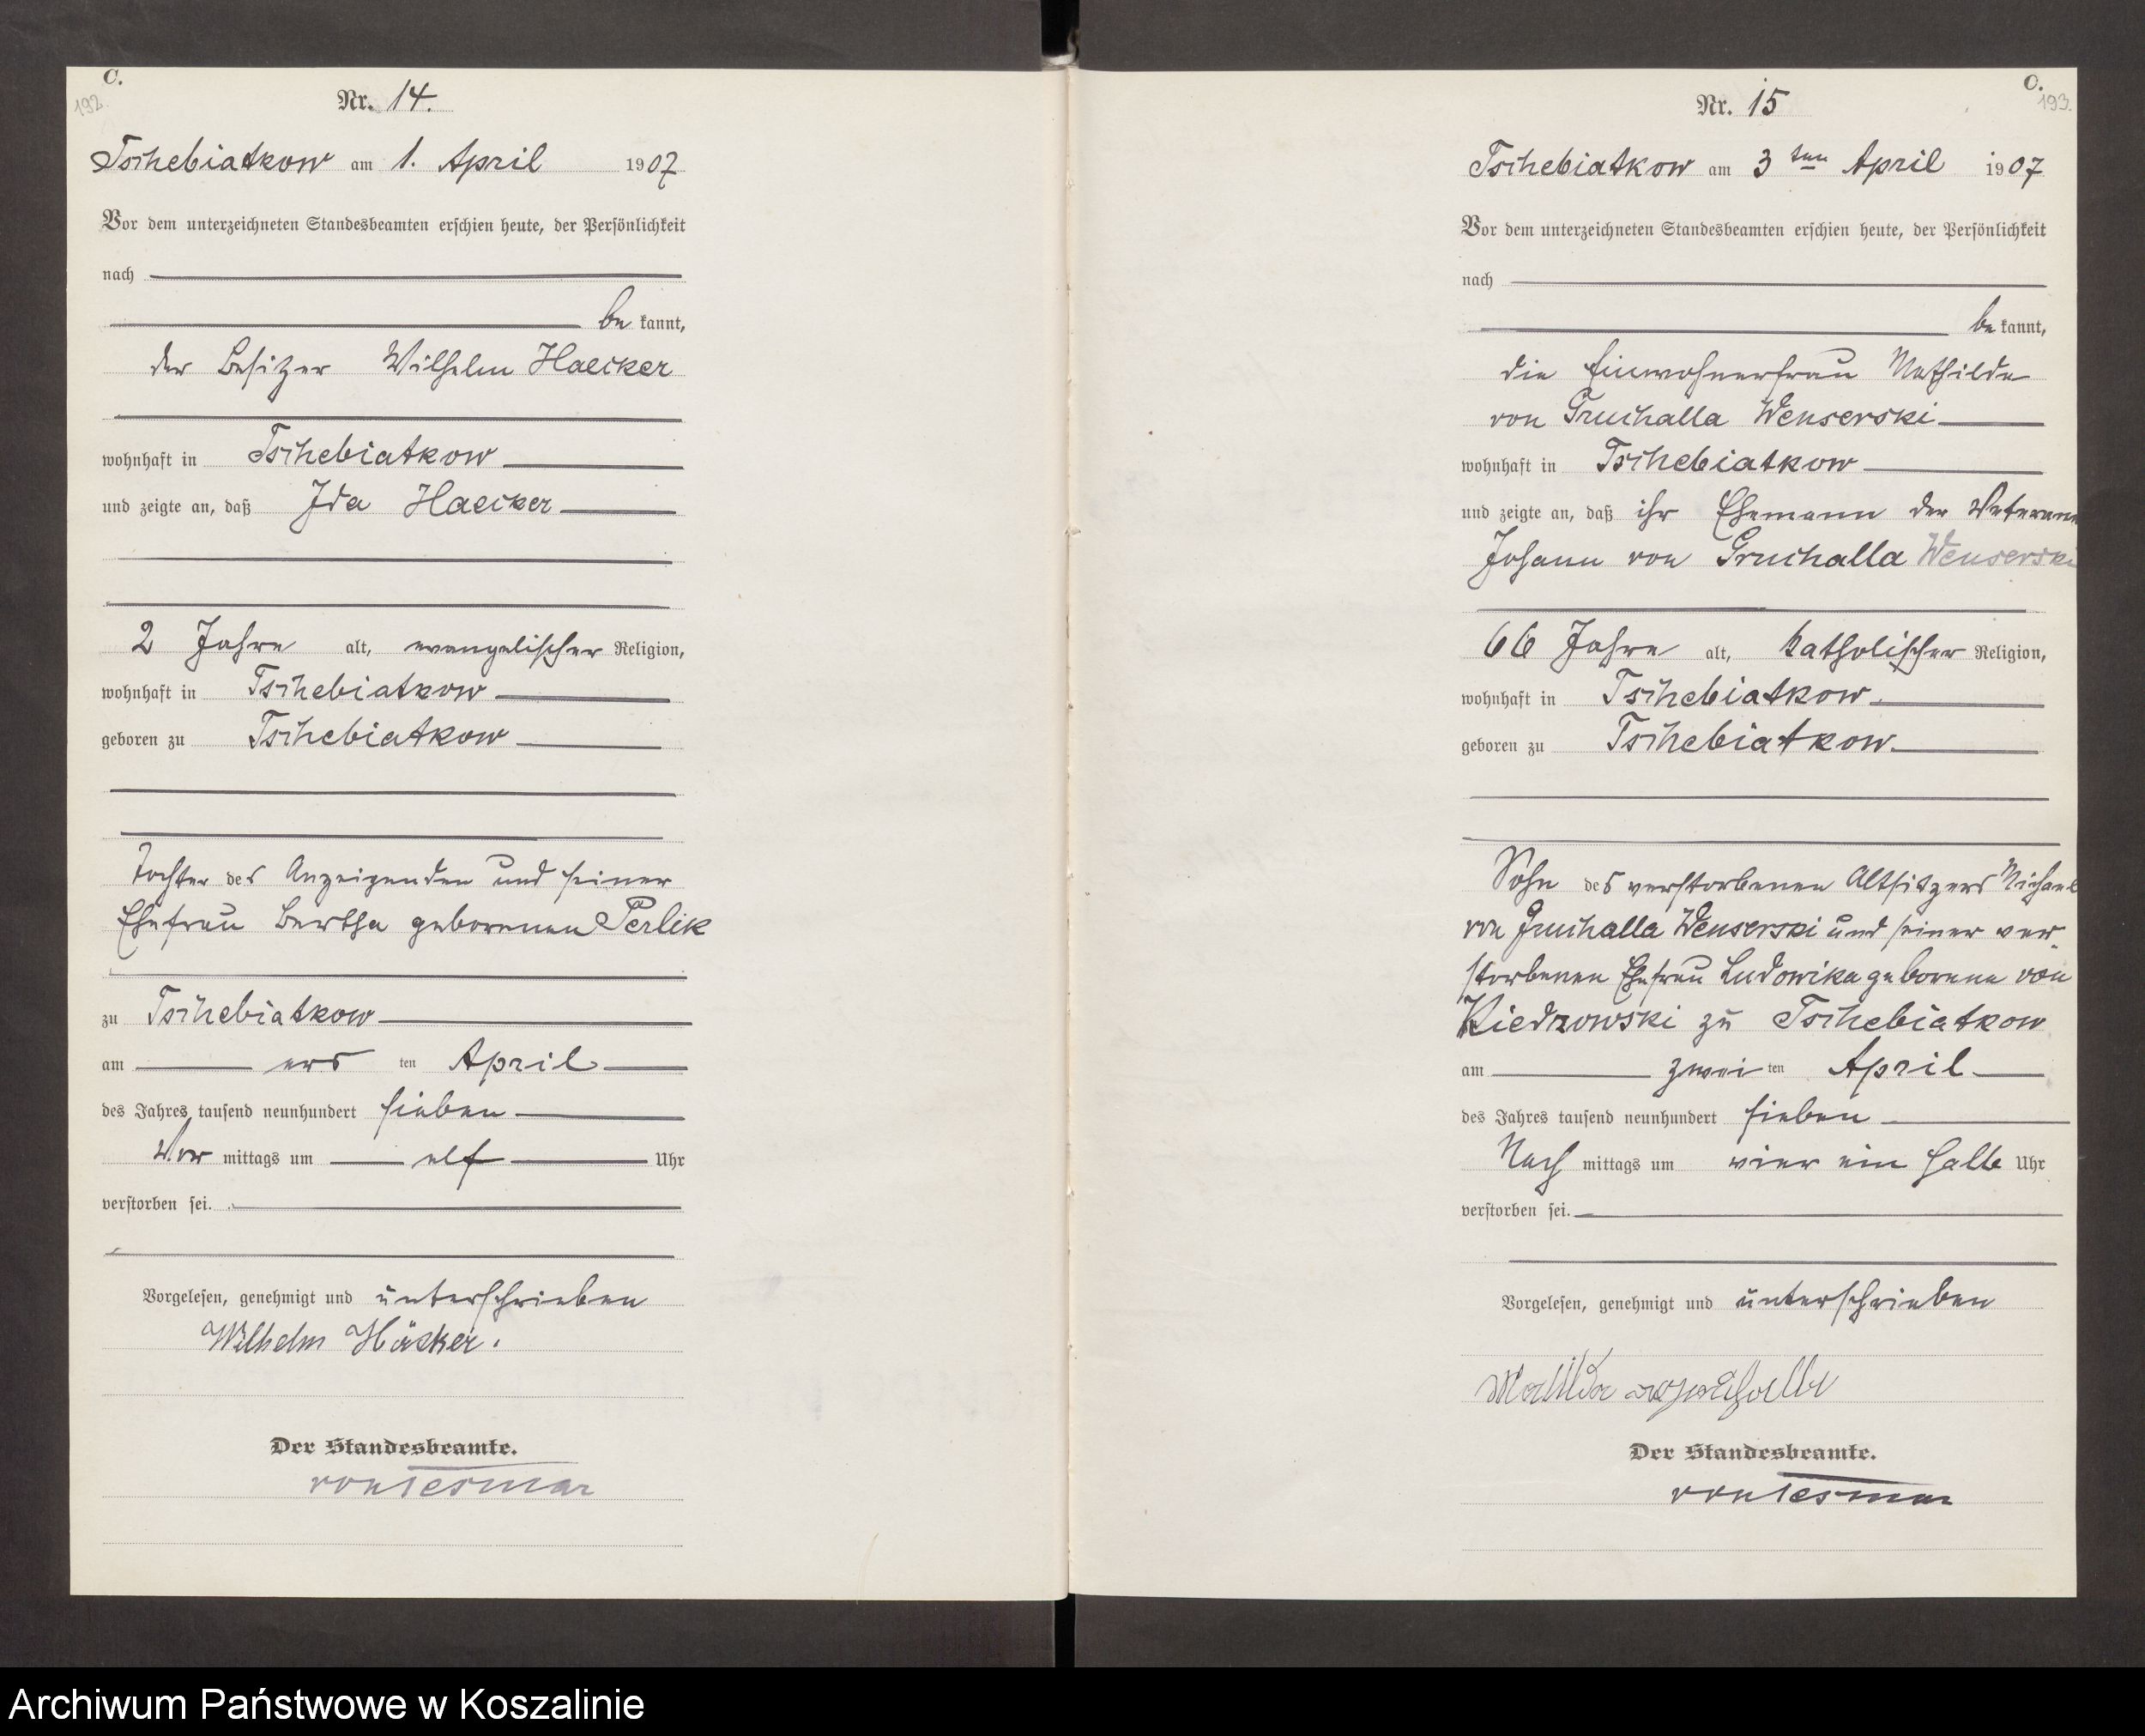 C.
192.
Nr. 14.
Tschebiatkow am 1. April 1907
Vor dem unterzeichneten Standesbeamten erschien heute, der Persönlichkeit
nach
be kannt,
der Besitzer Wilhelm Haecker
wohnhaft in Tschebiatkow
und zeigte an, daß Ida Haecker
2 Jahre alt, evangelischer Religion,
wohnhaft in Tschebiatkow
geboren zu Tschebiatkow
Tochter des Anzeigenden und seiner
Ehefrau Bertha geborenen Perlik
zu Tschebiatkow
am ers ten April
des Jahres tausend neunhundert sieben
Vor mittags um elf Uhr
verstorben sei.
Vorgelesen, genehmigt und unterschrieben
Wilhelm Häcker.
Der Standesbeamte.
von Tesmar
C.
193.
Nr. 15
Tschebiatkow am 3ten April 1907
Vor dem unterzeichneten Standesbeamten erschien heute, der Persönlichkeit
nach
be kannt,
die Einwohnerfrau Mathilde
von Gruchalla Wenserski
wohnhaft in Tschebiatkow
und zeigte an, daß ihr Ehemann der Veteran
Johann von Gruchalla Wenserski
66 Jahre alt, katholischer Religion,
wohnhaft in Tschebiatkow
geboren zu Tschebiatkow
Sohn des verstorbenen Altsitzers Michael
von Gruchalla Wenserski und seiner ver-
storbenen Ehefrau Ludowika geborene von
Kiedrowski zu Tschebiatkow
am zwei ten April
des Jahres tausend neunhundert sieben
Nach mittags um vier ein halb Uhr
verstorben sei.
Vorgelesen, genehmigt und unterschrieben
Der Standesbeamte.
von Tesmar
Archiwum Państwowe w Koszalinie